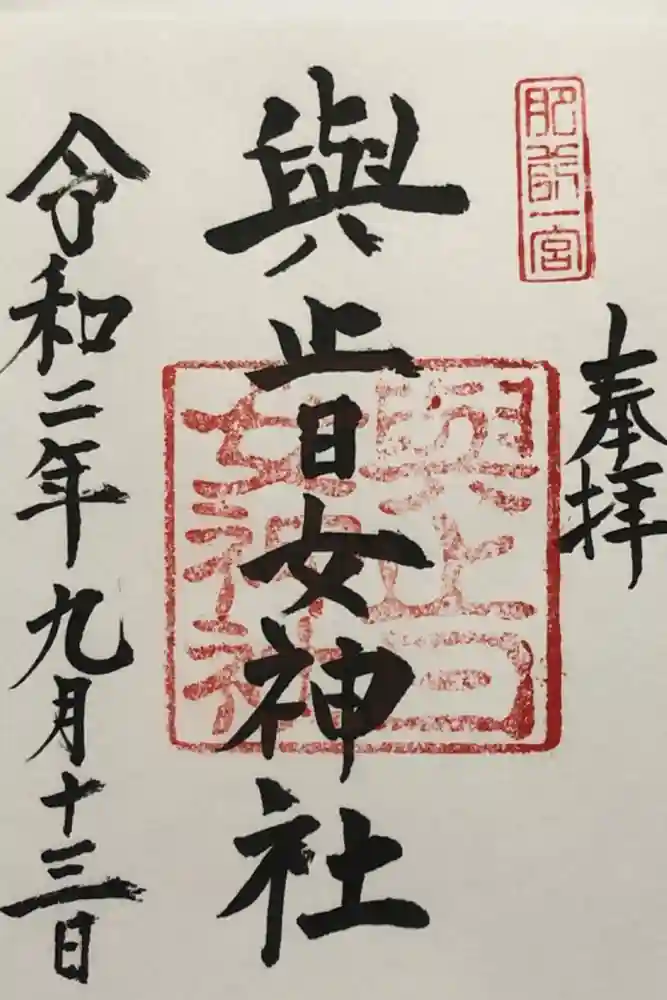 肥前一宮
奉拝
與止日女神社
與止日
女神社
令和二年九月十三日